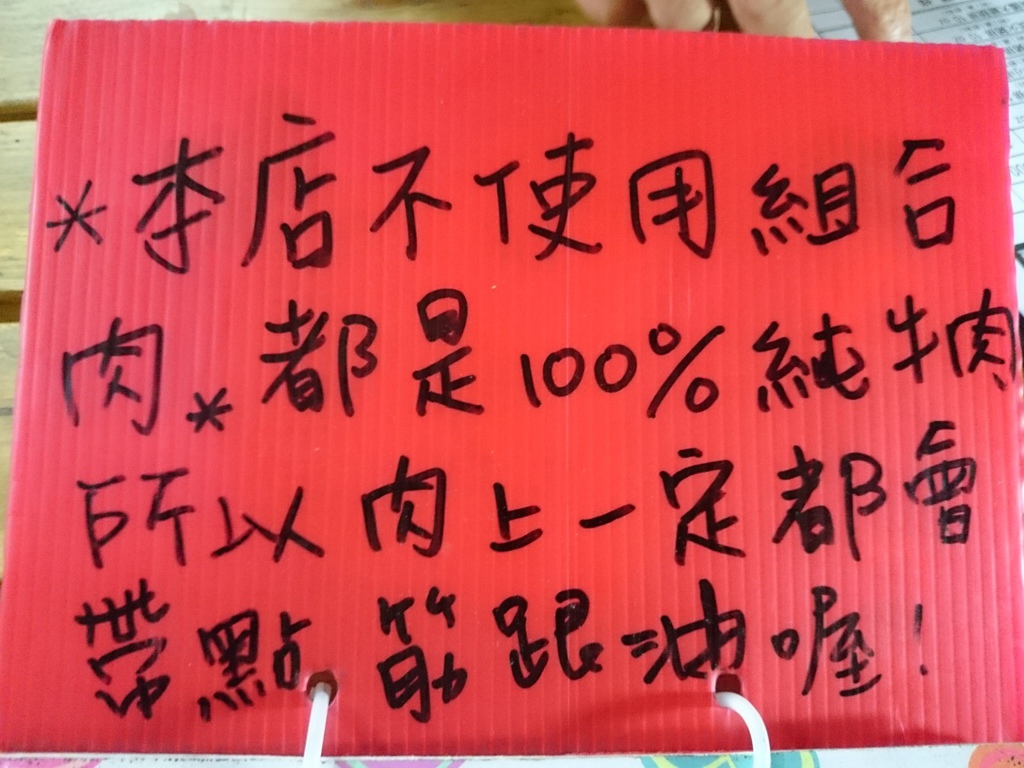 *本店不使用組合
肉*都是100%純牛肉
所以肉上一定都會
帶點筋跟油喔!